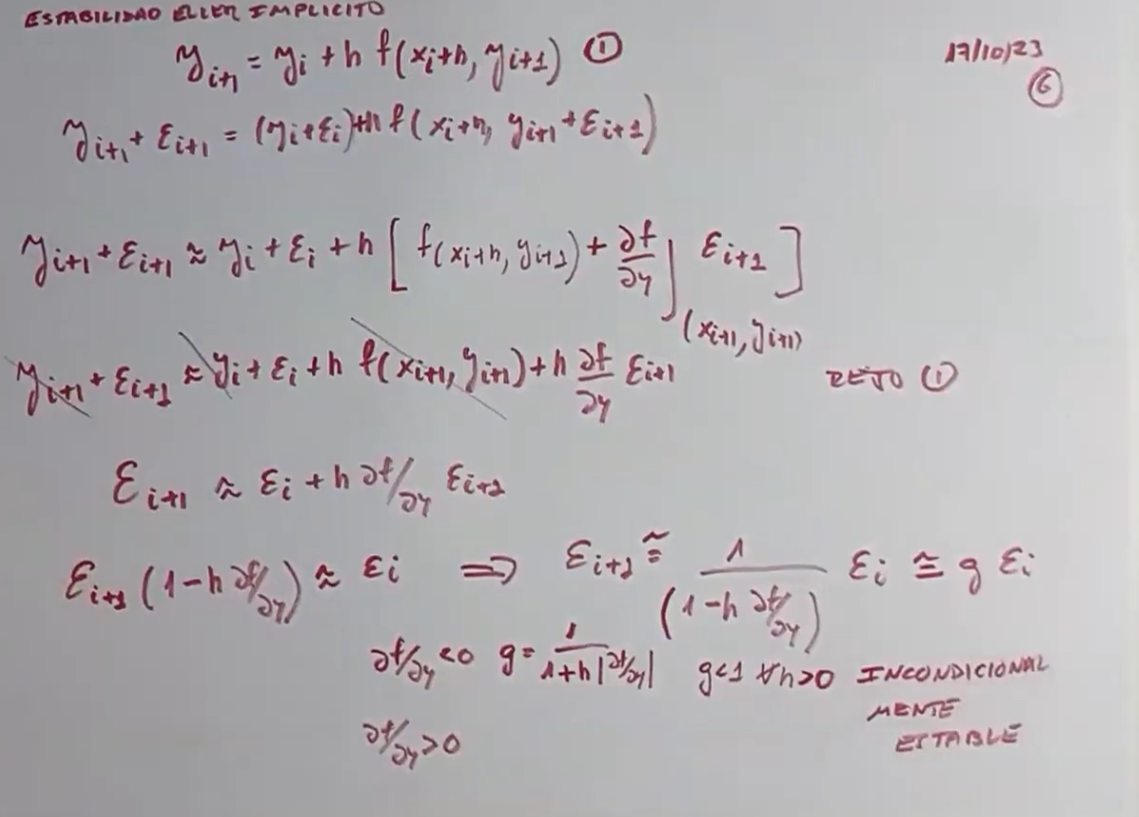 ESTABILIDAD EULER IMPLICITO
y_{i+1} = y_i + h f(x_i+h, y_{i+1}) ①
17/10/23
⑥
y_{i+1} + ε_{i+1} = (y_i+ε_i)+h f(x_i+h, y_{i+1}+ε_{i+1})
y_{i+1} + ε_{i+1} ≈ y_i + ε_i + h [ f(x_i+h, y_{i+1}) + ∂f/∂y ]_{(x_{i+1}, y_{i+1})} ε_{i+1} ]
y_{i+1} + ε_{i+1} ≈ y_i + ε_i + h f(x_{i+1}, y_{i+1}) + h ∂f/∂y ε_{i+1} RETO ①
ε_{i+1} ≈ ε_i + h ∂f/∂y ε_{i+1}
ε_{i+1} (1-h ∂f/∂y) ≈ ε_i ⇒ ε_{i+1} ≅ 1/(1-h ∂f/∂y) ε_i ≅ g ε_i
∂f/∂y<0 g= 1/1+h|∂f/∂y| g<1 ∀h>0 INCONDICIONAL
MENTE
ESTABLE
∂f/∂y>0